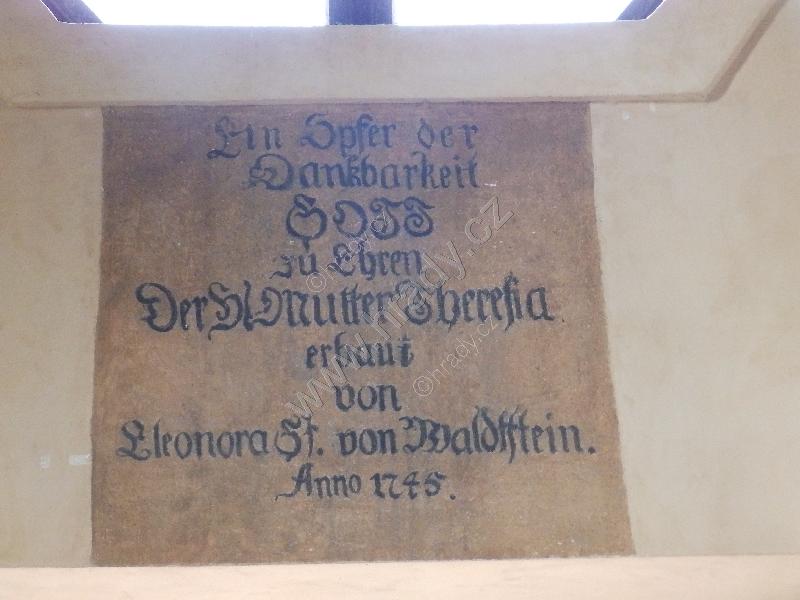 Ein Opfer der
Dankbarkeit
GOTT
zu Ehren
Der Hl Mutter Theresia
erbaut
von
Eleonora Gf. von Waldstein.
Anno 1745.
www.hrady.cz
©hrady.cz
©hrady.cz